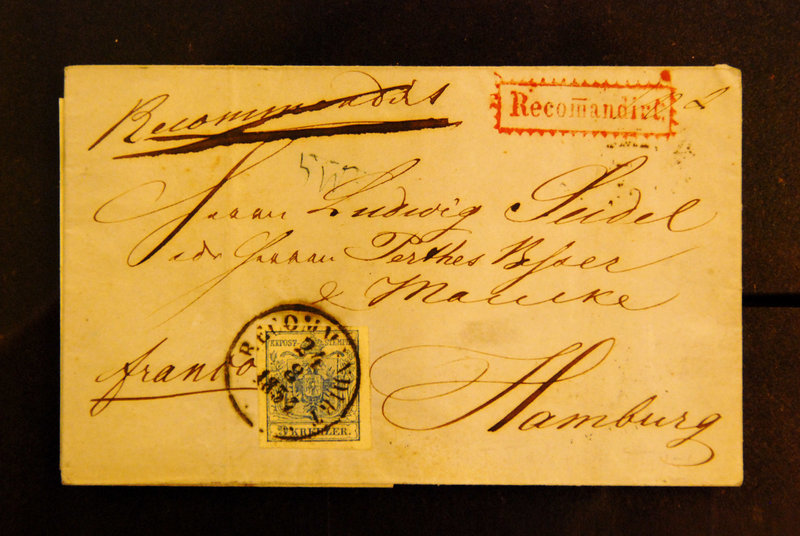 Recommandirt
Recom̄andirt.
Herrn Ludwig Seidel
Herren Perthes Besser
& Mauke
franco
RECOMMANDIRT
KK POST-STEMPEL
9 KREUZER.
Hamburg